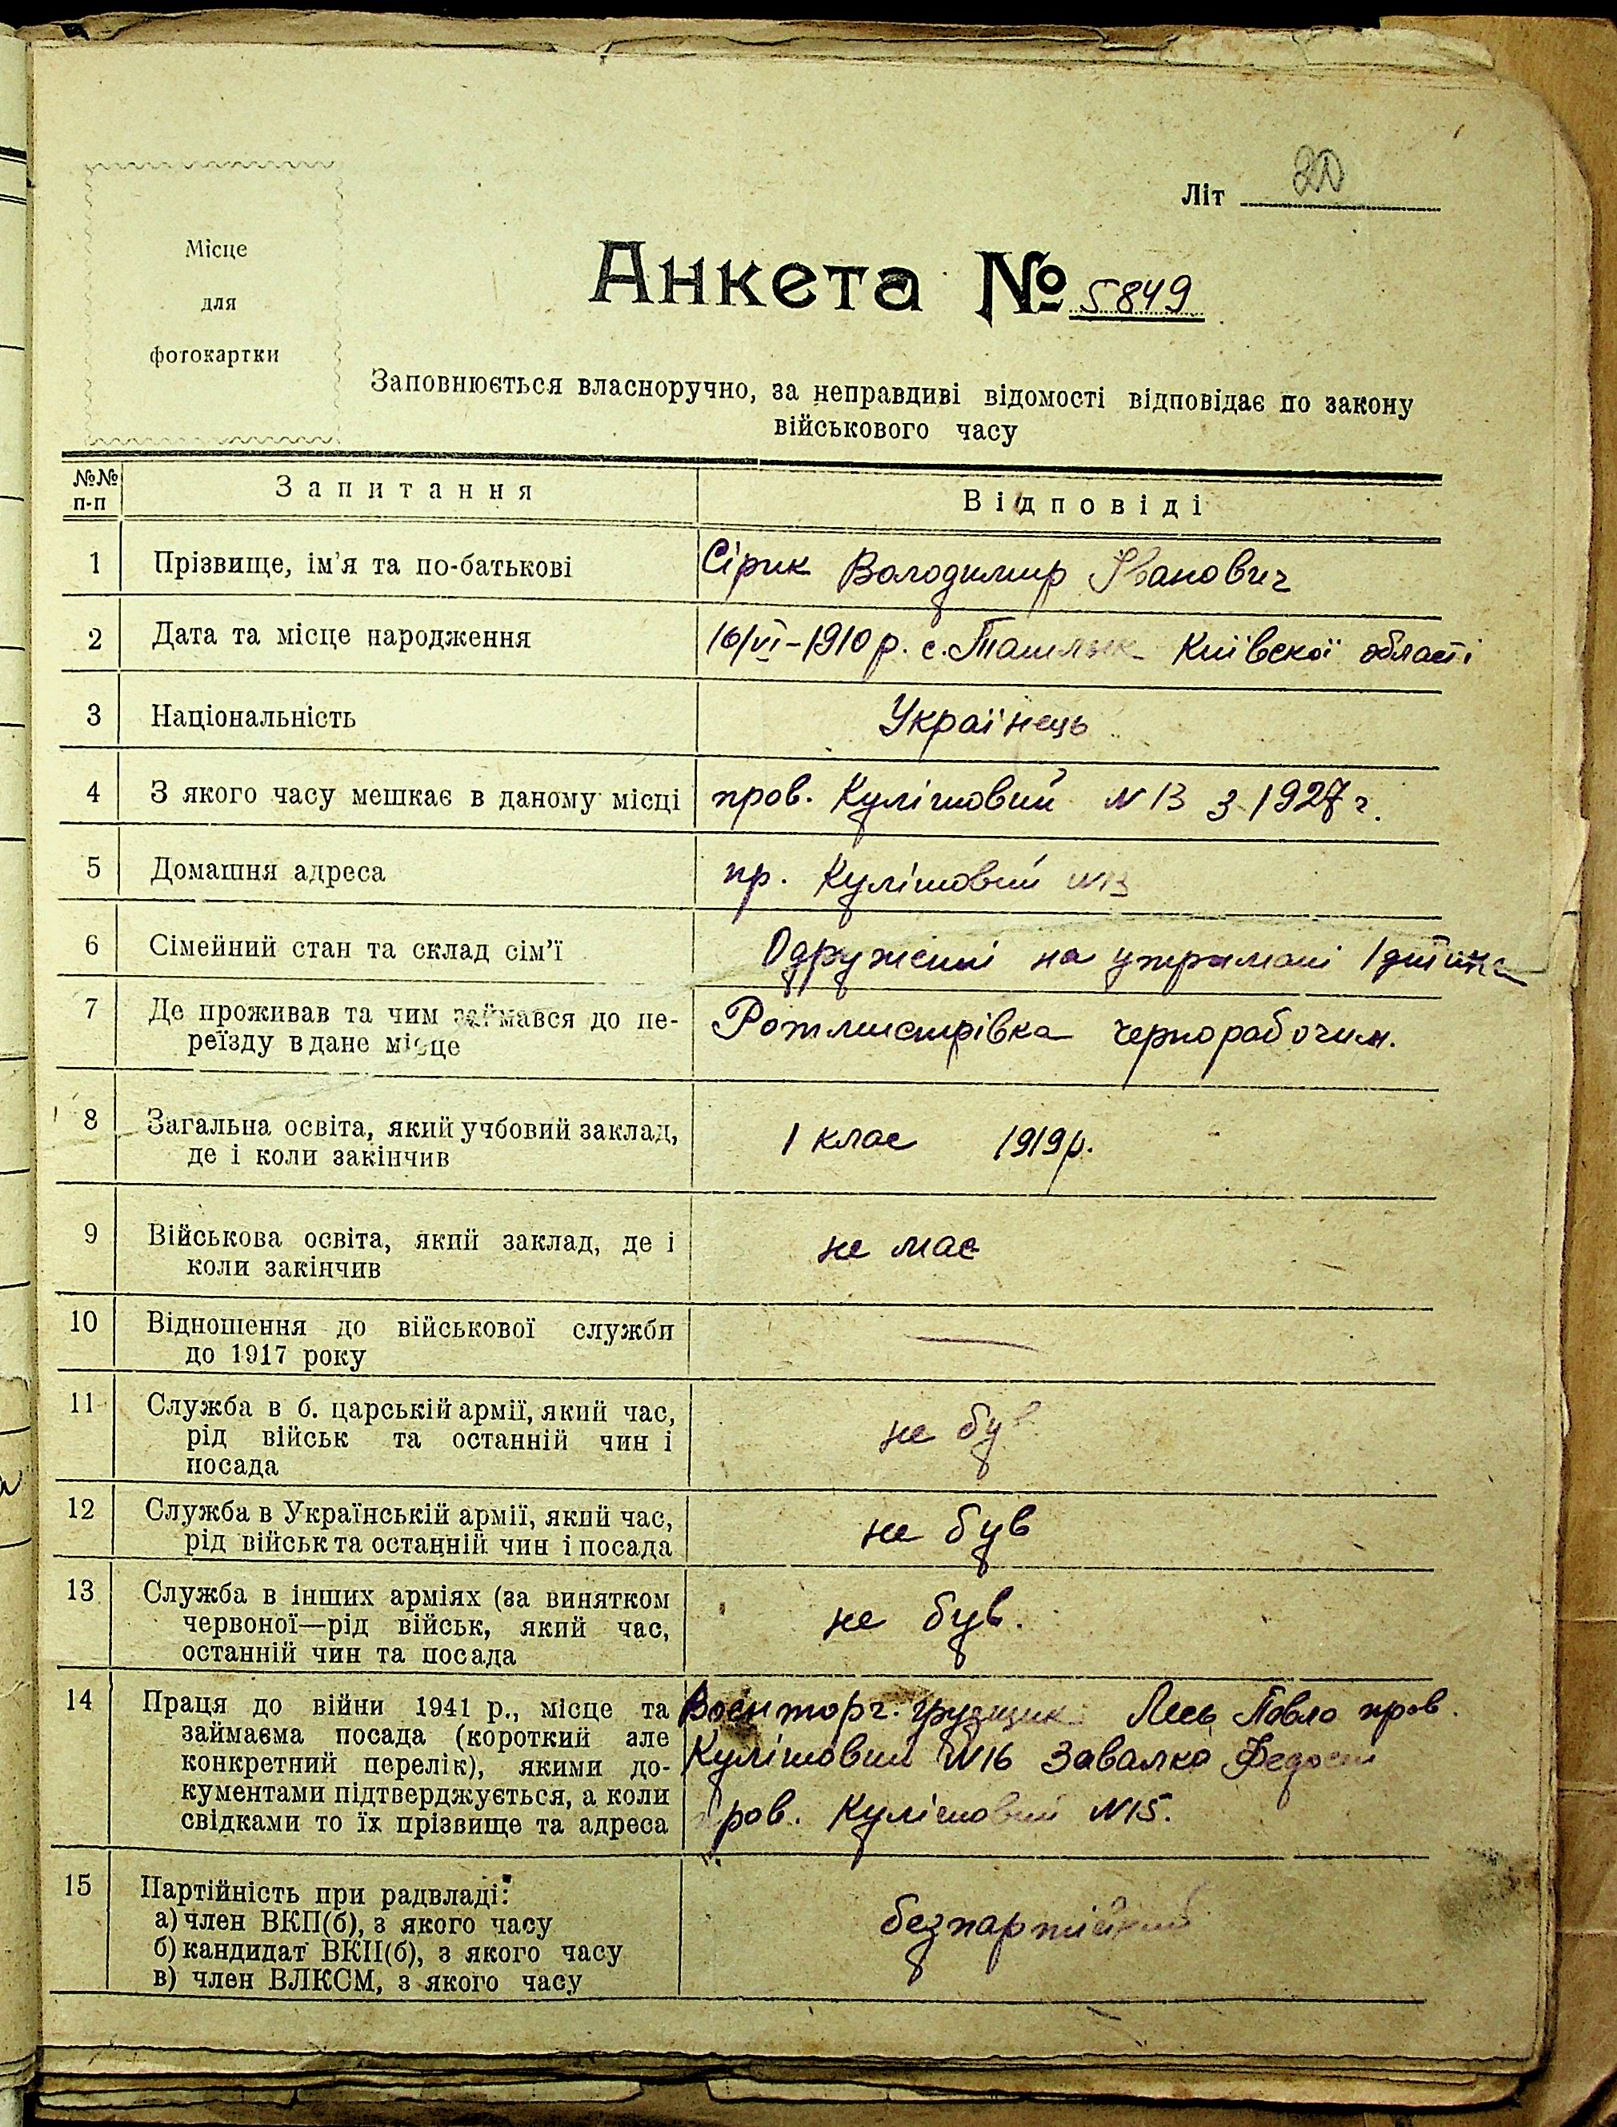 Літ 20
Місце
для
фотокартки
Анкета № 5849
Заповнюється власноручно, за неправдиві відомості відповідає по закону
військового часу
№№ п-п Запитання Відповіді
1 Прізвище, ім'я та по-батькові Сірик Володимир Іванович
2 Дата та місце народження 16/VI-1910 р. с. Ташлык Київскої області
3 Національність Українець
4 З якого часу мешкає в даному місці пров. Кулішовий N 13 з 1927 г.
5 Домашня адреса пр. Кулішовий N13
6 Сімейний стан та склад сім'ї Одружений на утримані 1 дитина
7 Де проживав та чим займався до пе-
реїзду в дане місце Ротмистрівка чернорабочим.
8 Загальна освіта, який учбовий заклад,
де і коли закінчив 1 клас 1919 р.
9 Військова освіта, який заклад, де і
коли закінчив не має
10 Відношення до військової служби
до 1917 року —
11 Служба в б. царській армії, який час,
рід військ та останній чин і
посада не був
12 Служба в Українській армії, який час,
рід військ та останній чин і посада не був
13 Служба в інших арміях (за винятком
червоної—рід військ, який час,
останній чин та посада не був.
14 Праця до війни 1941 р., місце та
займаєма посада (короткий але
конкретний перелік), якими до-
кументами підтверджується, а коли
свідками то їх прізвище та адреса
Военторг. грузщик Лесь Павло пров.
Кулішовий N16 Завалко
пров. Кулішовий N15.
15 Партійність при радвладі:
а) член ВКП(б), з якого часу
б) кандидат ВКП(б), з якого часу
в) член ВЛКСМ, з якого часу
безпартійний